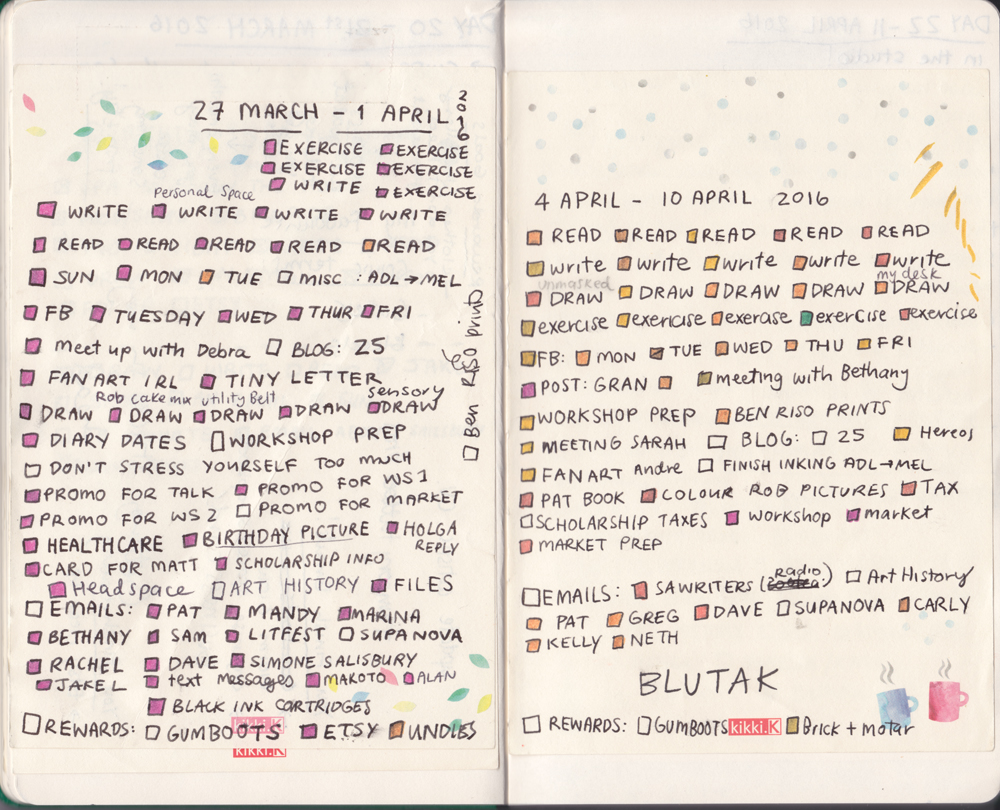 DAY 20 - 21st MARCH 2016
27 MARCH - 1 APRIL 2016
EXERCISE EXERCISE
EXERCISE EXERCISE
WRITE EXERCISE
Personal Space
WRITE WRITE WRITE WRITE
READ READ READ READ READ
SUN MON TUE MISC : ADL→MEL
FB TUESDAY WED THUR FRI
meet up with Debra BLOG: 25
FAN ART IRL TINY LETTER
Rob Cake mix Utility Belt sensory
DRAW DRAW DRAW DRAW DRAW
DIARY DATES WORKSHOP PREP
Ben RISO prints
DON'T STRESS YOURSELF TOO MUCH
PROMO FOR TALK PROMO FOR WS1
PROMO FOR WS2 PROMO FOR MARKET
HEALTHCARE BIRTHDAY PICTURE HOLGA REPLY
CARD FOR MATT SCHOLARSHIP INFO
Headspace ART HISTORY FILES
EMAILS: PAT MANDY MARINA
BETHANY SAM LITFEST SUPANOVA
RACHEL DAVE SIMONE SALISBURY
JAKEL text messages MAKOTO ALAN
BLACK INK CARTRIDGES
REWARDS: GUMBOOTS ETSY UNDIES
kikki.K
kikki.K
DAY 22 - 11 APRIL 2016
in the studio!
4 APRIL - 10 APRIL 2016
READ READ READ READ READ
write write write write write
unmasked my desk
DRAW DRAW DRAW DRAW DRAW
exercise exericise exerase exercise exercise
FB: MON TUE WED THU FRI
POST: GRAN meeting with Bethany
WORKSHOP PREP BEN RISO PRINTS
MEETING SARAH BLOG: 25 Hereos
FAN ART Andre FINISH INKING ADL→MEL
PAT BOOK COLOUR ROB PICTURES TAX
SCHOLARSHIP TAXES workshop market
MARKET PREP
radio
EMAILS: SAWRITERS Art History
PAT GREG DAVE SUPANOVA CARLY
KELLY NETH
BLUTAK
REWARDS: GUMBOOTS kikki.K Brick + motar